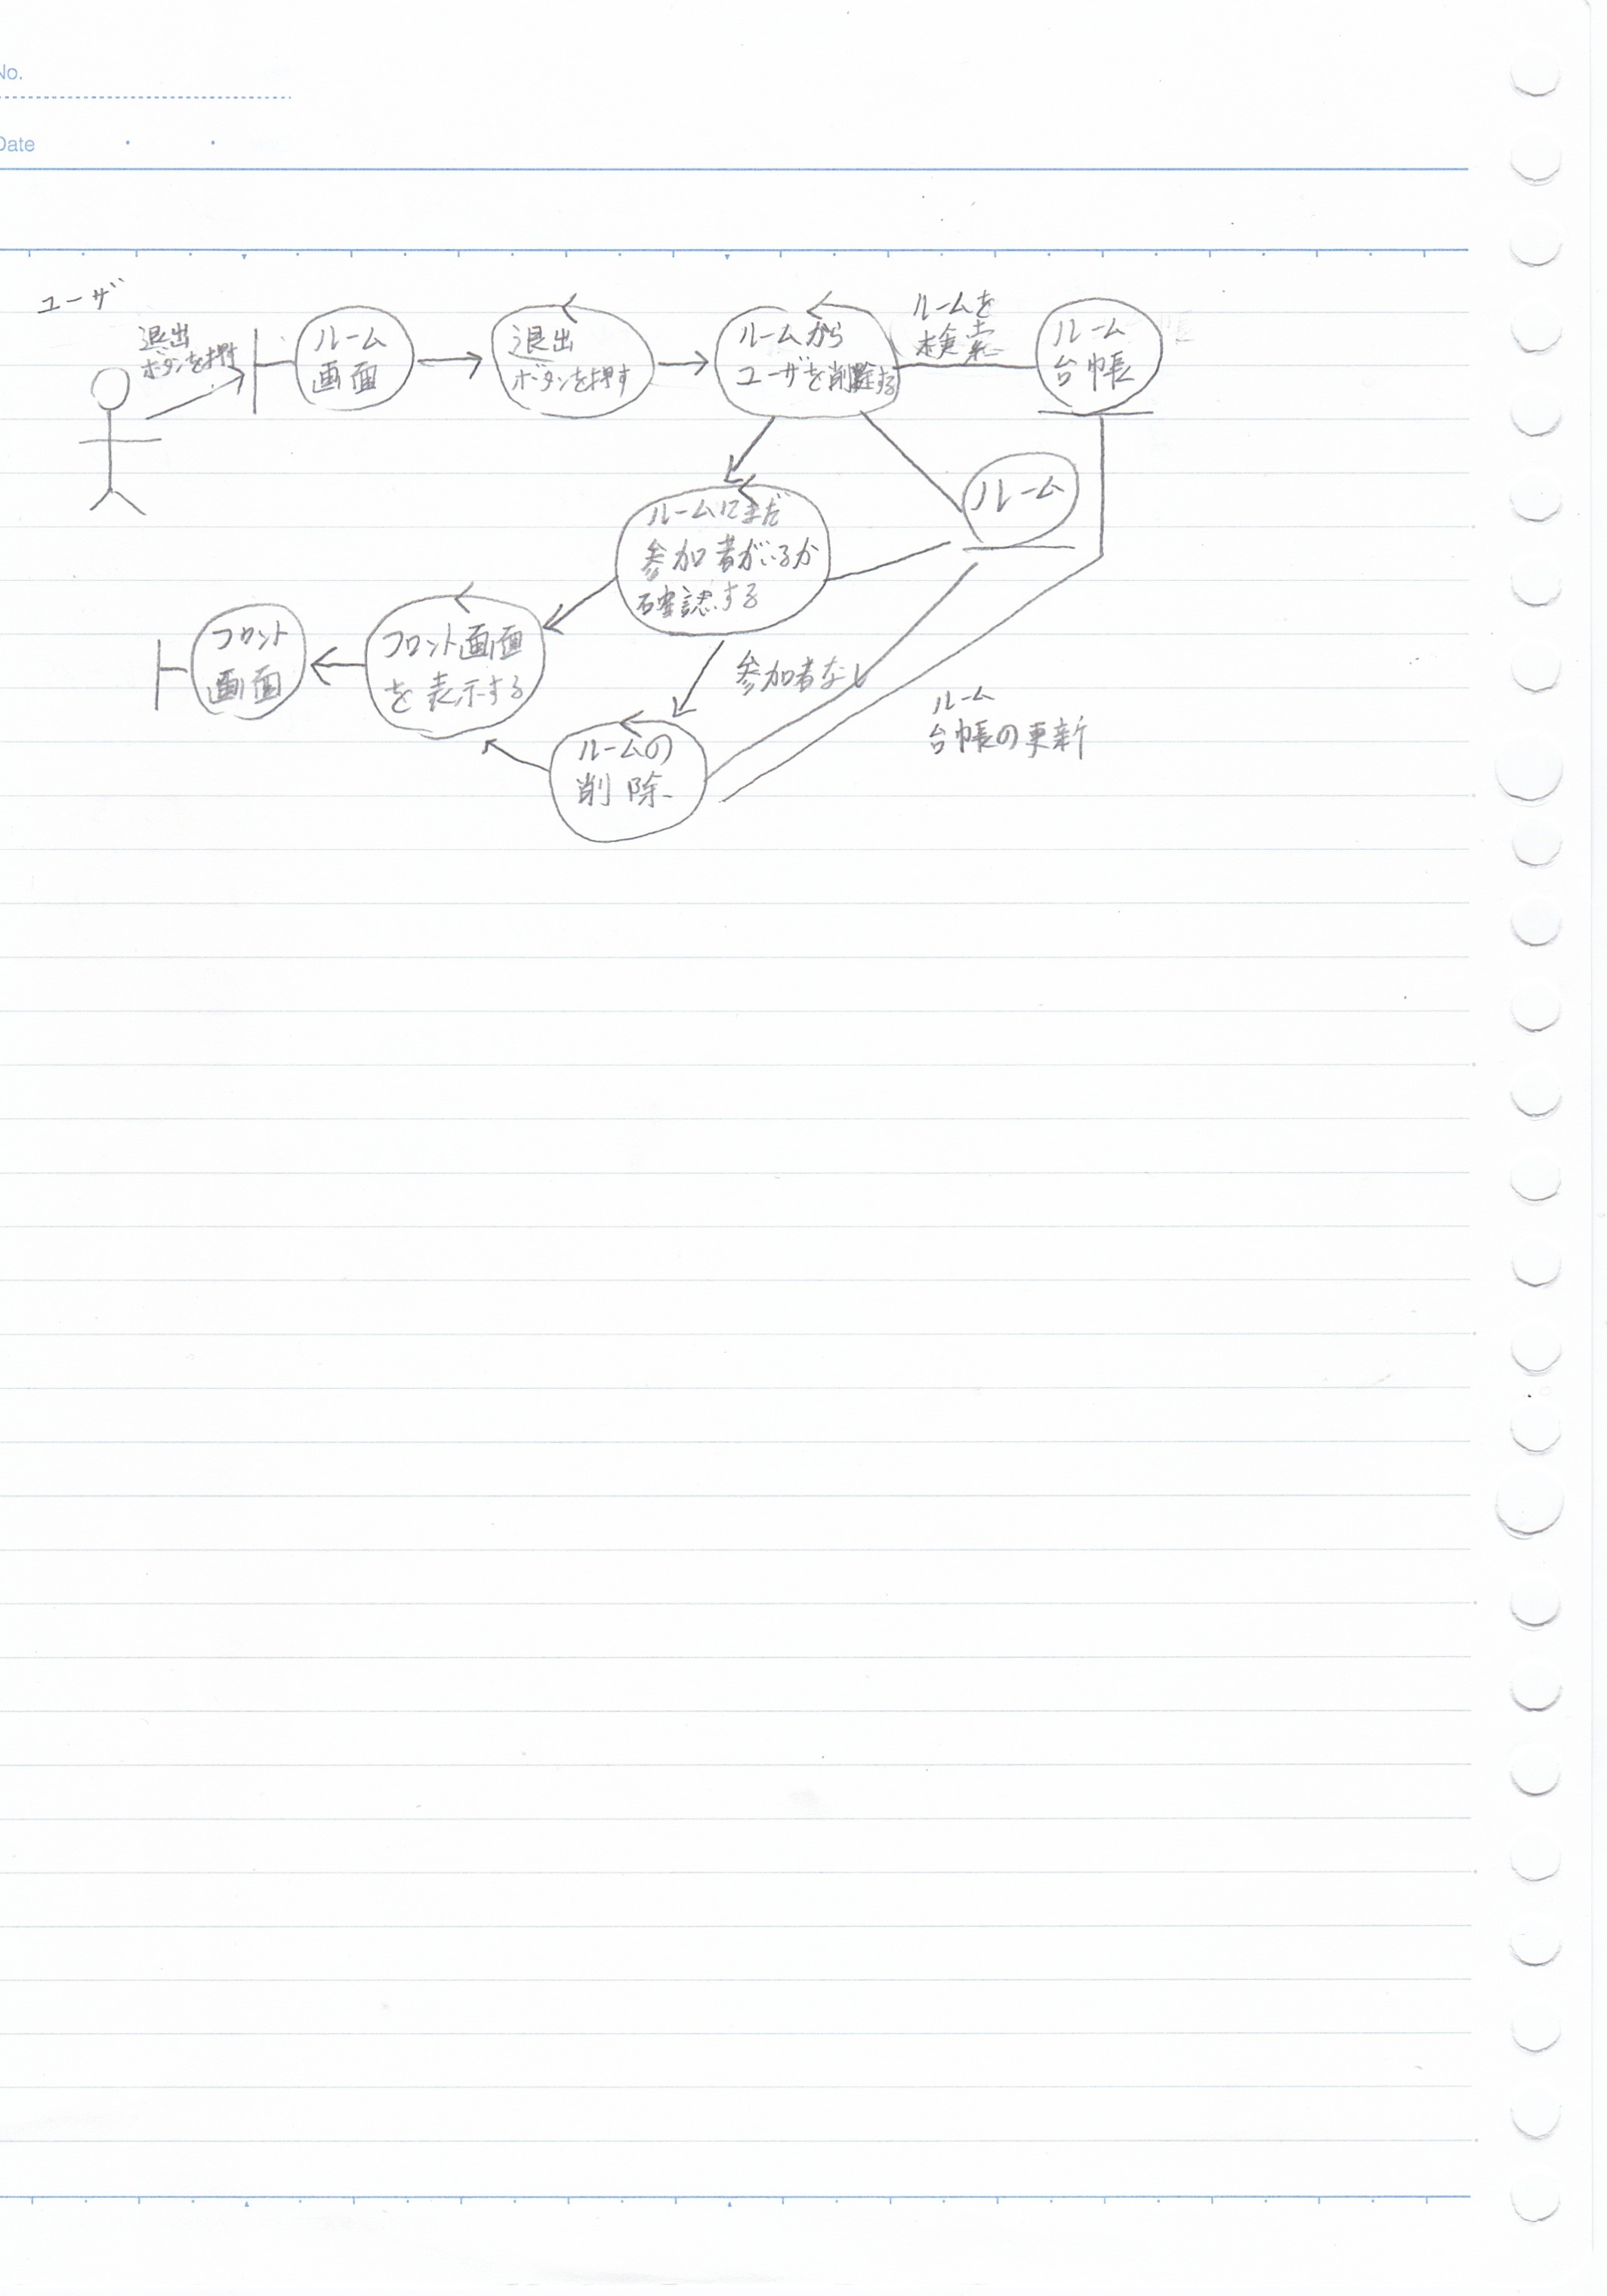 No.
Date
ユーザ
退出
ボタンを押す
ルーム
画面
退出
ボタンを押す
ルームから
ユーザを削除する
ルームを
検索
ルーム
台帳
ルーム
ルームにまだ
参加者がいるか
確認する
フロント
画面
フロント画面
を表示する
参加者なし
ルーム
台帳の更新
ルームの
削除